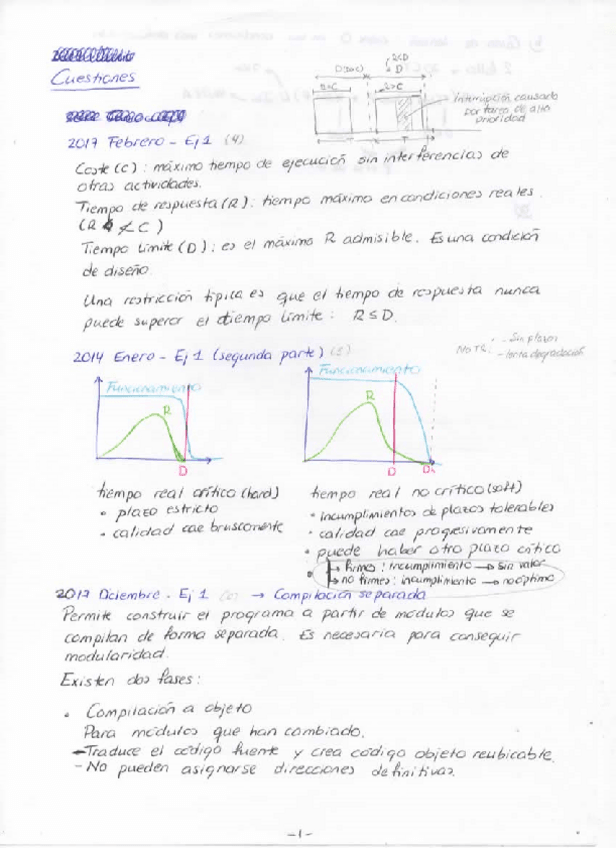 Cuestiones
D(>C)
R<D
D
R=C
R>C
T
T
Interrupción causada
por tarea de alta
prioridad
2017 Febrero - Ej 1 (4)
Coste (C) : máximo tiempo de ejecución sin interferencias de
otras actividades.
Tiempo de respuesta (R) : tiempo máximo en condiciones reales.
(R ≮ C)
Tiempo límite (D) : es el máximo R admisible. Es una condición
de diseño.
Una restricción típica es que el tiempo de respuesta nunca
puede superar el tiempo límite : R ≤ D.
2014 Enero - Ej 1 (segunda parte) (5)
No TR :
- Sin plazos
- lenta degradación
Funcionamiento
R
D
Funcionamiento
R
D
tiempo real crítico (hard)
• plazo estricto
• calidad cae bruscamente
tiempo real no crítico (soft)
• incumplimientos de plazos tolerables
• calidad cae progresivamente
• puede haber otro plazo crítico
• firmes : incumplimiento → sin valor
no firmes : incumplimiento → no óptimo
2017 Diciembre - Ej 1 → Compilación separada
Permite construir el programa a partir de módulos que se
compilan de forma separada. Es necesaria para conseguir
modularidad.
Existen dos fases :
• Compilación a objeto
Para módulos que han cambiado.
- Traduce el código fuente y crea código objeto reubicable.
- No pueden asignarse direcciones definitivas.
-1-